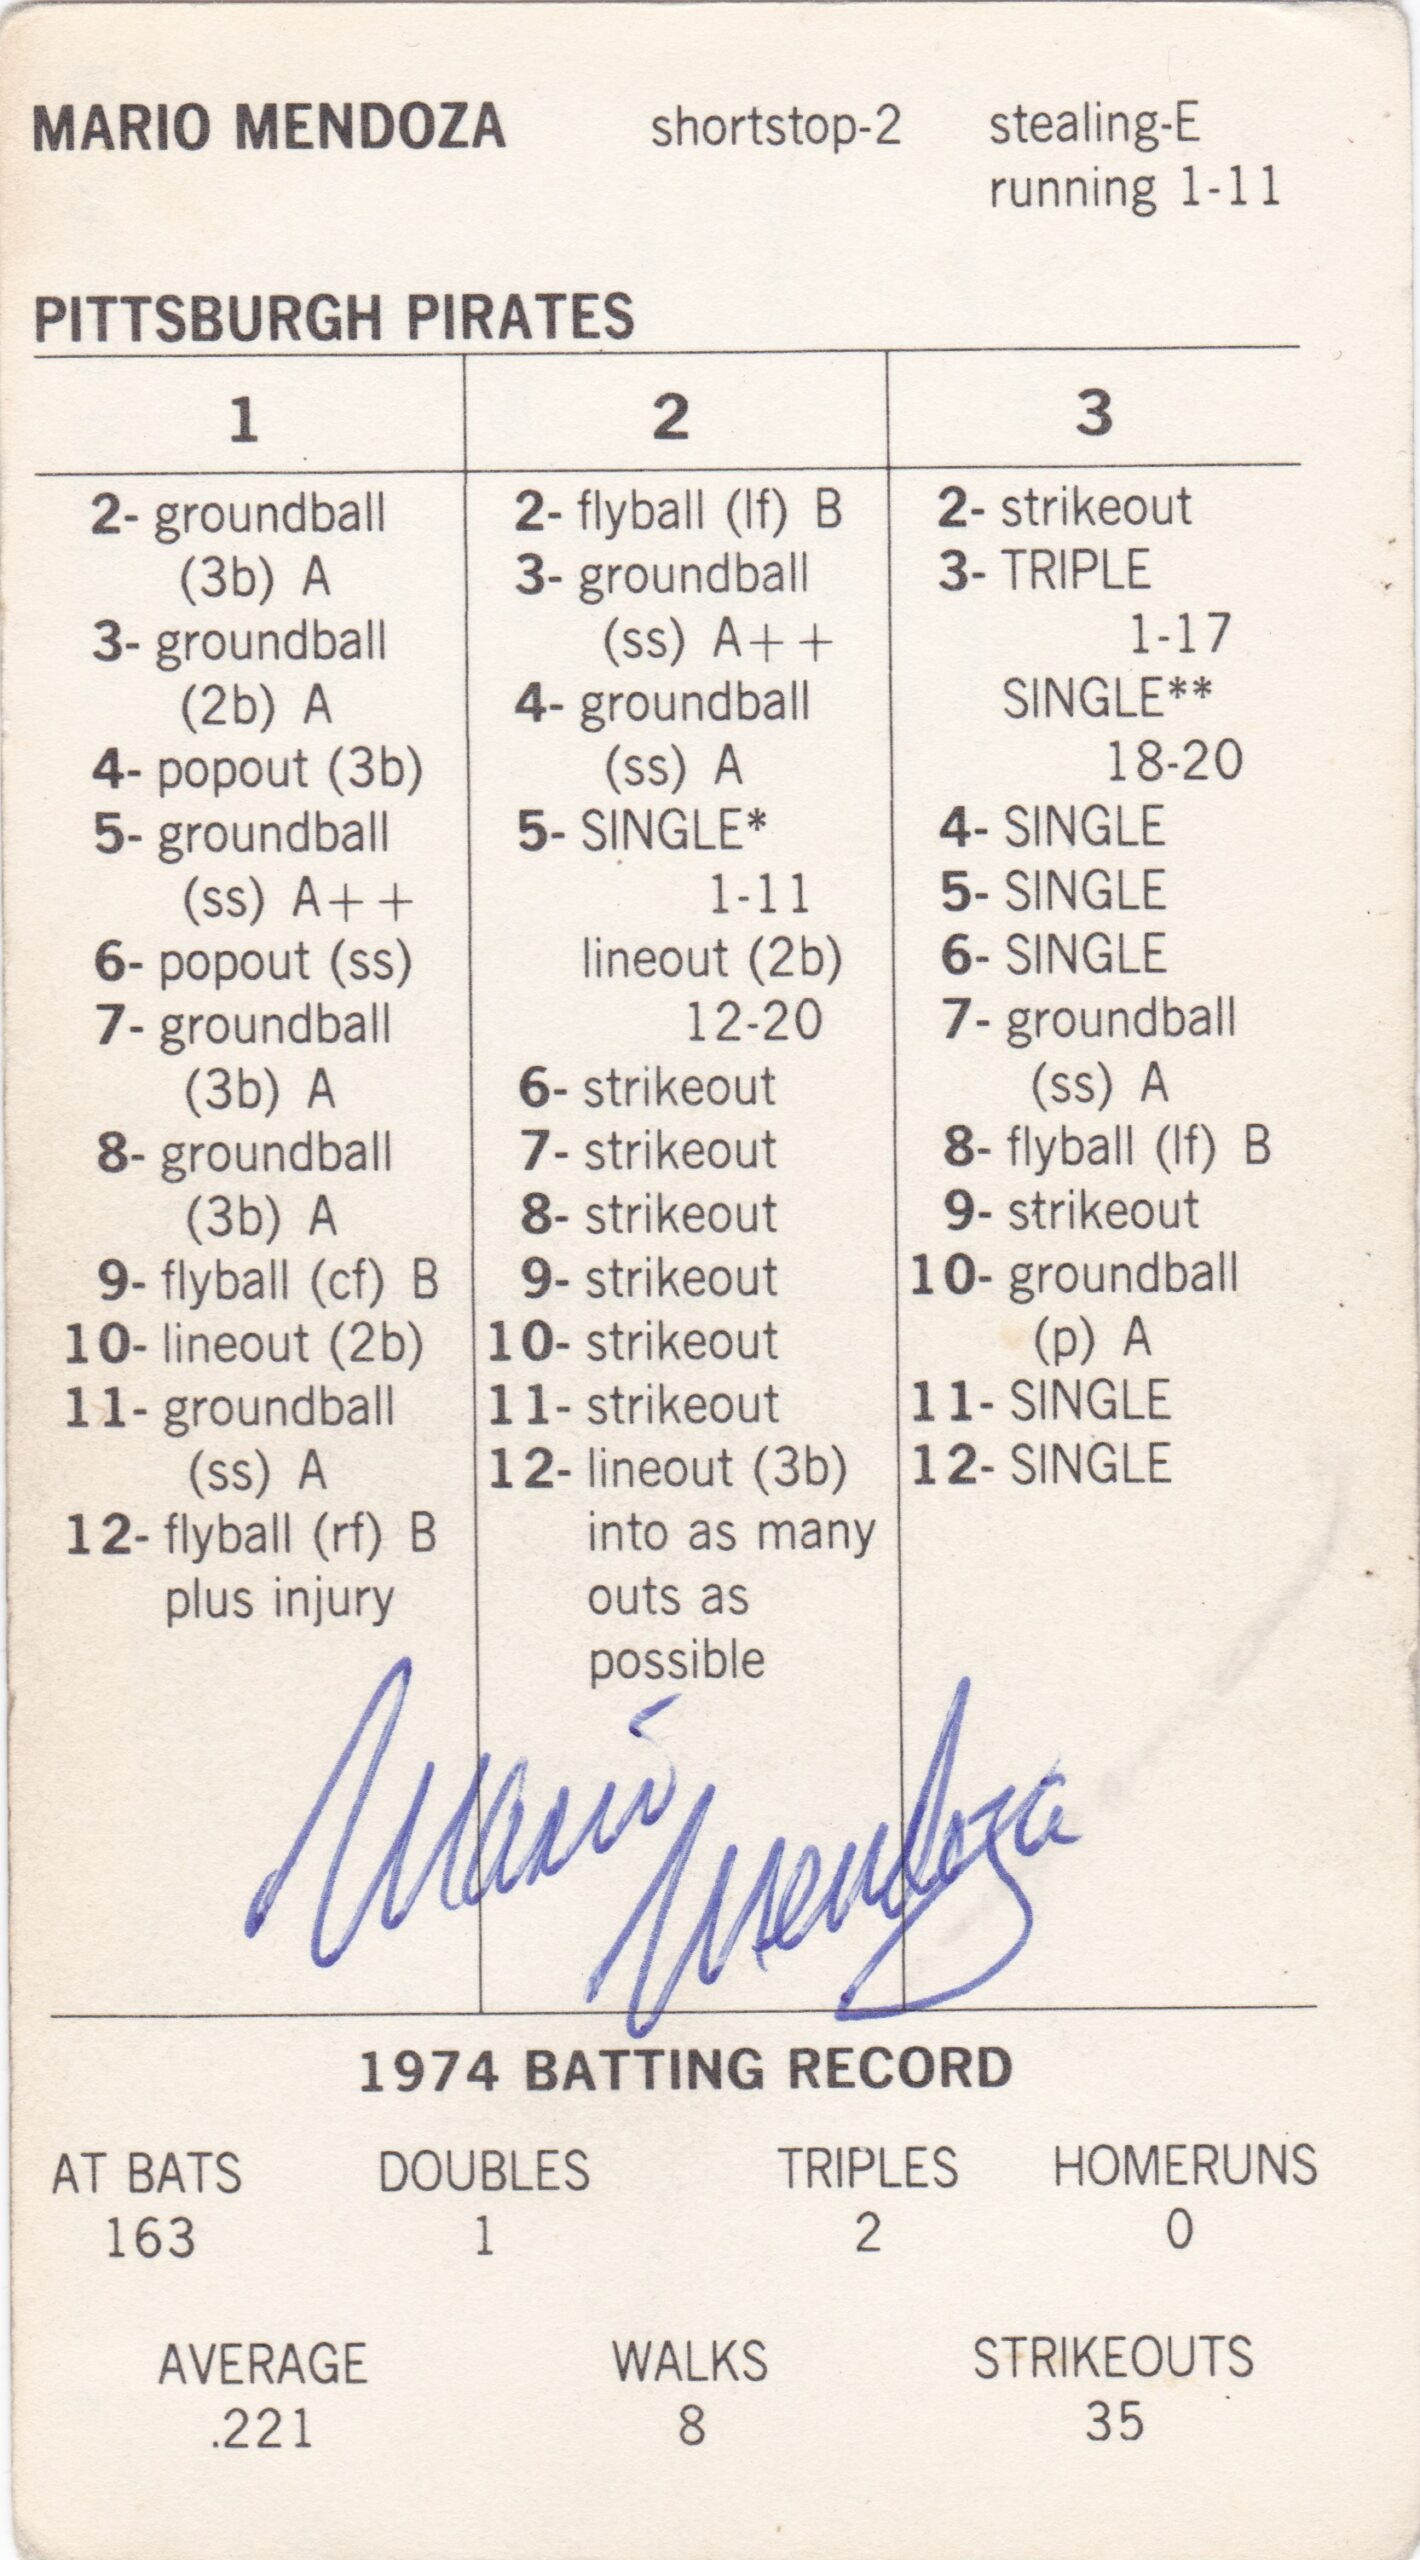 MARIO MENDOZA shortstop-2 stealing-E
running 1-11
PITTSBURGH PIRATES
1
2- groundball
(3b) A
3- groundball
(2b) A
4- popout (3b)
5- groundball
(ss) A++
6- popout (ss)
7- groundball
(3b) A
8- groundball
(3b) A
9- flyball (cf) B
10- lineout (2b)
11- groundball
(ss) A
12- flyball (rf) B
plus injury
2
2- flyball (lf) B
3- groundball
(ss) A++
4- groundball
(ss) A
5- SINGLE*
1-11
lineout (2b)
12-20
6- strikeout
7- strikeout
8- strikeout
9- strikeout
10- strikeout
11- strikeout
12- lineout (3b)
into as many
outs as
possible
3
2- strikeout
3- TRIPLE
1-17
SINGLE**
18-20
4- SINGLE
5- SINGLE
6- SINGLE
7- groundball
(ss) A
8- flyball (lf) B
9- strikeout
10- groundball
(p) A
11- SINGLE
12- SINGLE
Mario
Mendoza
1974 BATTING RECORD
AT BATS DOUBLES TRIPLES HOMERUNS
163 1 2 0
AVERAGE WALKS STRIKEOUTS
.221 8 35